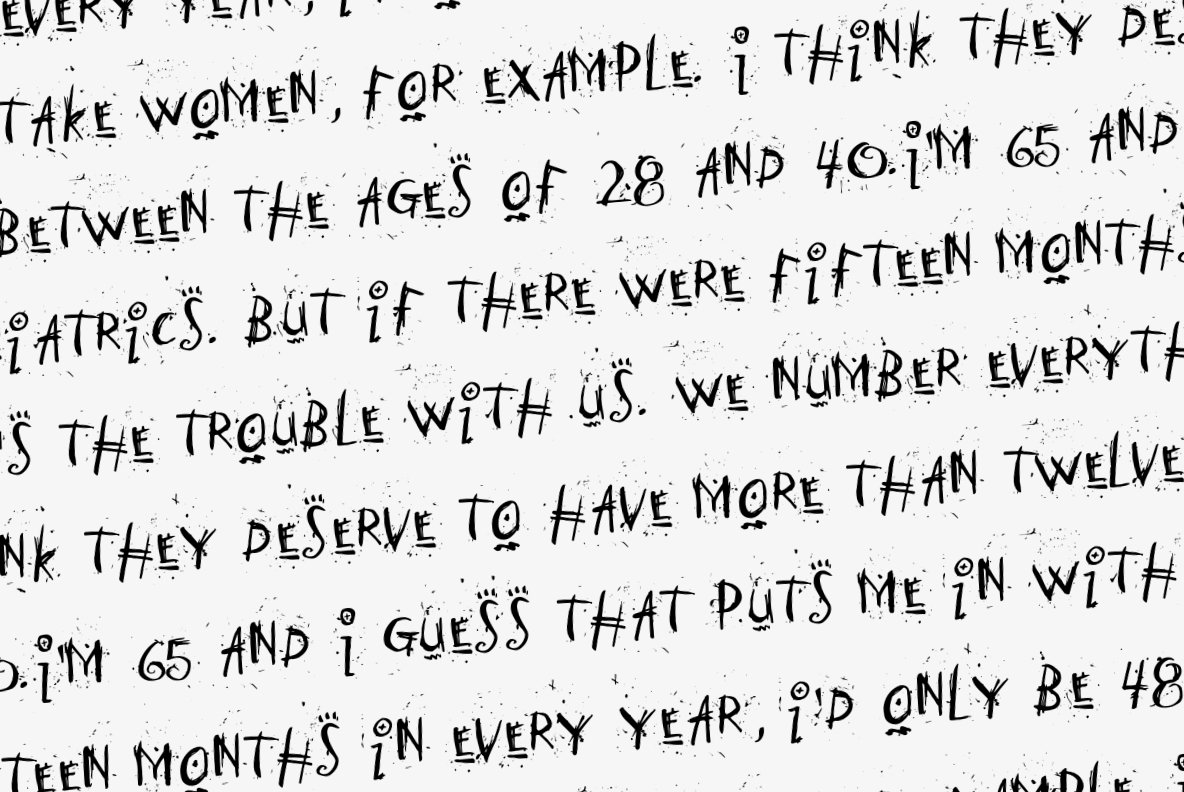 EVERY YEAR, I'D
TAKE WOMEN, FOR EXAMPLE. I THINK THEY
BETWEEN THE AGES OF 28 AND 40. I'M 65 AND
BUT IF THERE WERE FIFTEEN MONTHS
THE TROUBLE WITH US. WE NUMBER
THEY DESERVE TO HAVE MORE THAN TWELVE
I'M 65 AND I GUESS THAT PUTS ME IN WITH
MONTHS IN EVERY YEAR, I'D ONLY BE 48